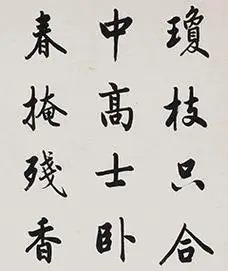 瓊枝只合
中高士卧
春掩殘香